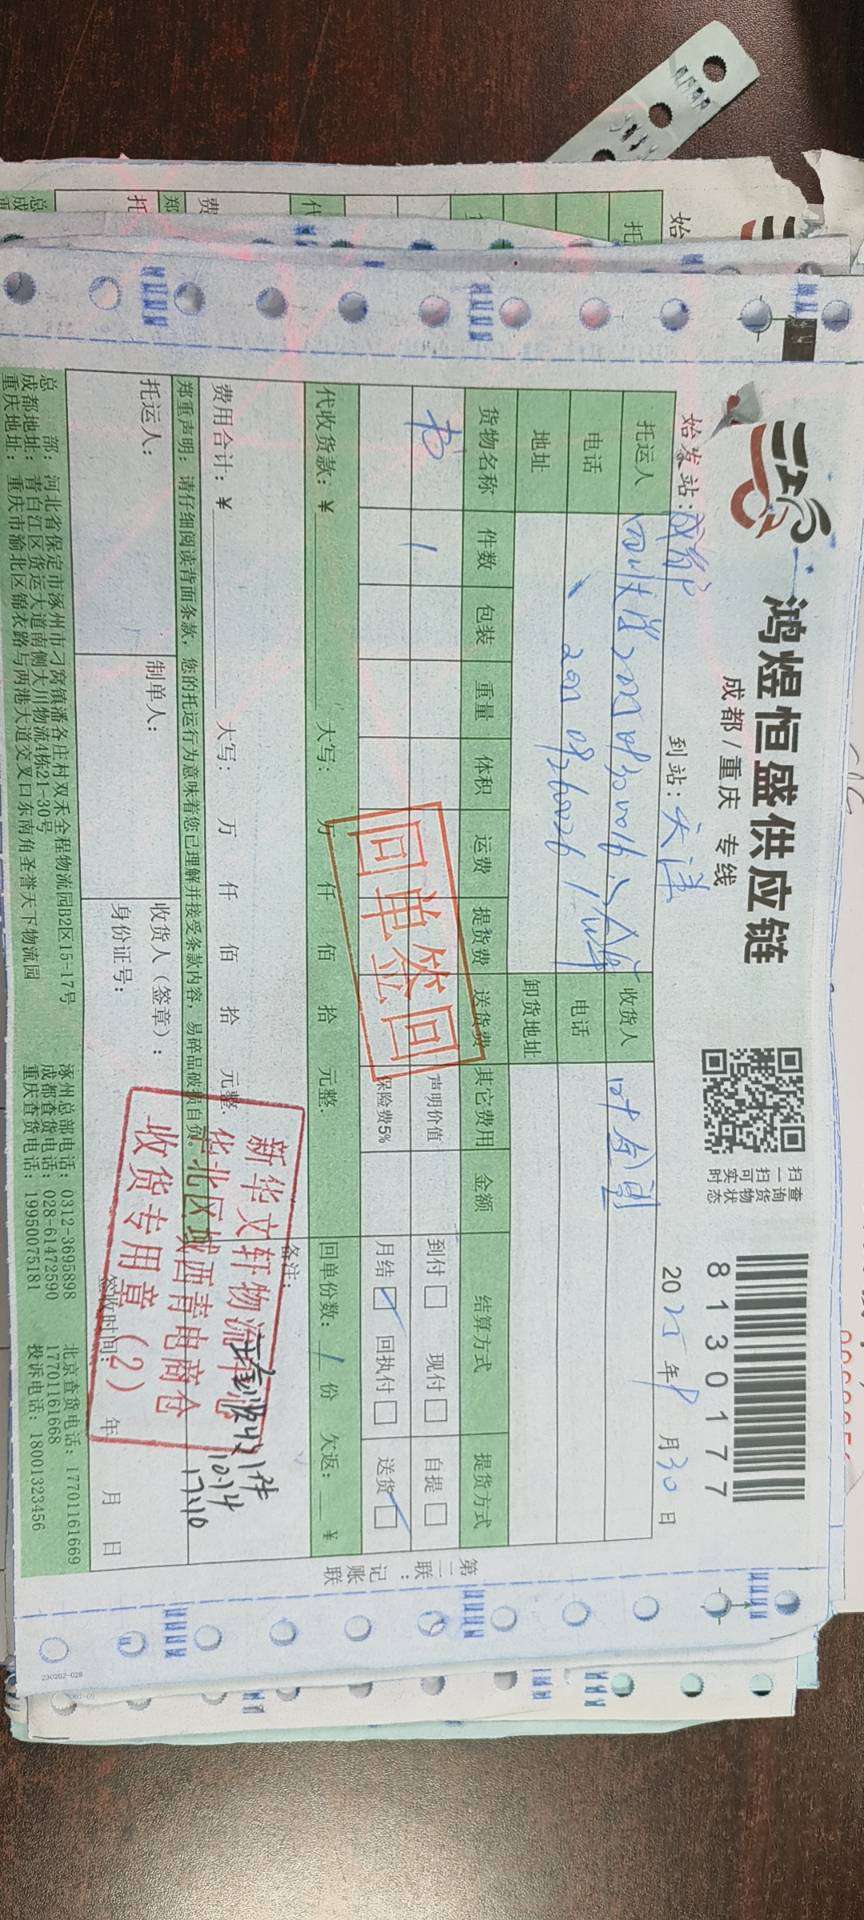 鸿煜恒盛供应链
成都/重庆 专线
扫一扫可实时
查询货物状态
8130177
始发站：成都
到站：天津
2025年8月30日
托运人
收货人
电话
202508260026
电话
地址
卸货地址
货物名称 件数 包装 重量 体积 运费 提货费 送货费 其它费用 金额 结算方式 提货方式
书 1
声明价值
到付 现付 自提
保险费5%
月结 回执付 送货
回单签回
代收货款：¥ 大写： 万 仟 佰 拾 元整
回单份数：1 份 欠返： ¥
费用合计：¥ 大写： 万 仟 佰 拾 元整
备注：
郑重声明：请仔细阅读背面条款，您的托运行为意味着您已理解并接受条款内容，易碎品破损自负。
托运人：
制单人：
收货人（签章）：
身份证号：
签收时间： 年 月 日
新华文轩物流
华北区域西青电商仓
收货专用章（2）
1件
10.14
17:10
总 部：河北省保定市涿州市刁窝镇潘各庄村双禾全程物流园B2区15-17号
成都地址：青白江区货运大道南侧大川物流4栋21-30号
重庆地址：重庆市渝北区锦衣路与两港大道交叉口东南角圣誉天下物流园
涿州总部电话：0312-3695898
成都查货电话：028-61472590
重庆查货电话：19950075181
北京查货电话：17701161669
17701161668
投诉电话：18001323456
第二联：记账联
230202-028